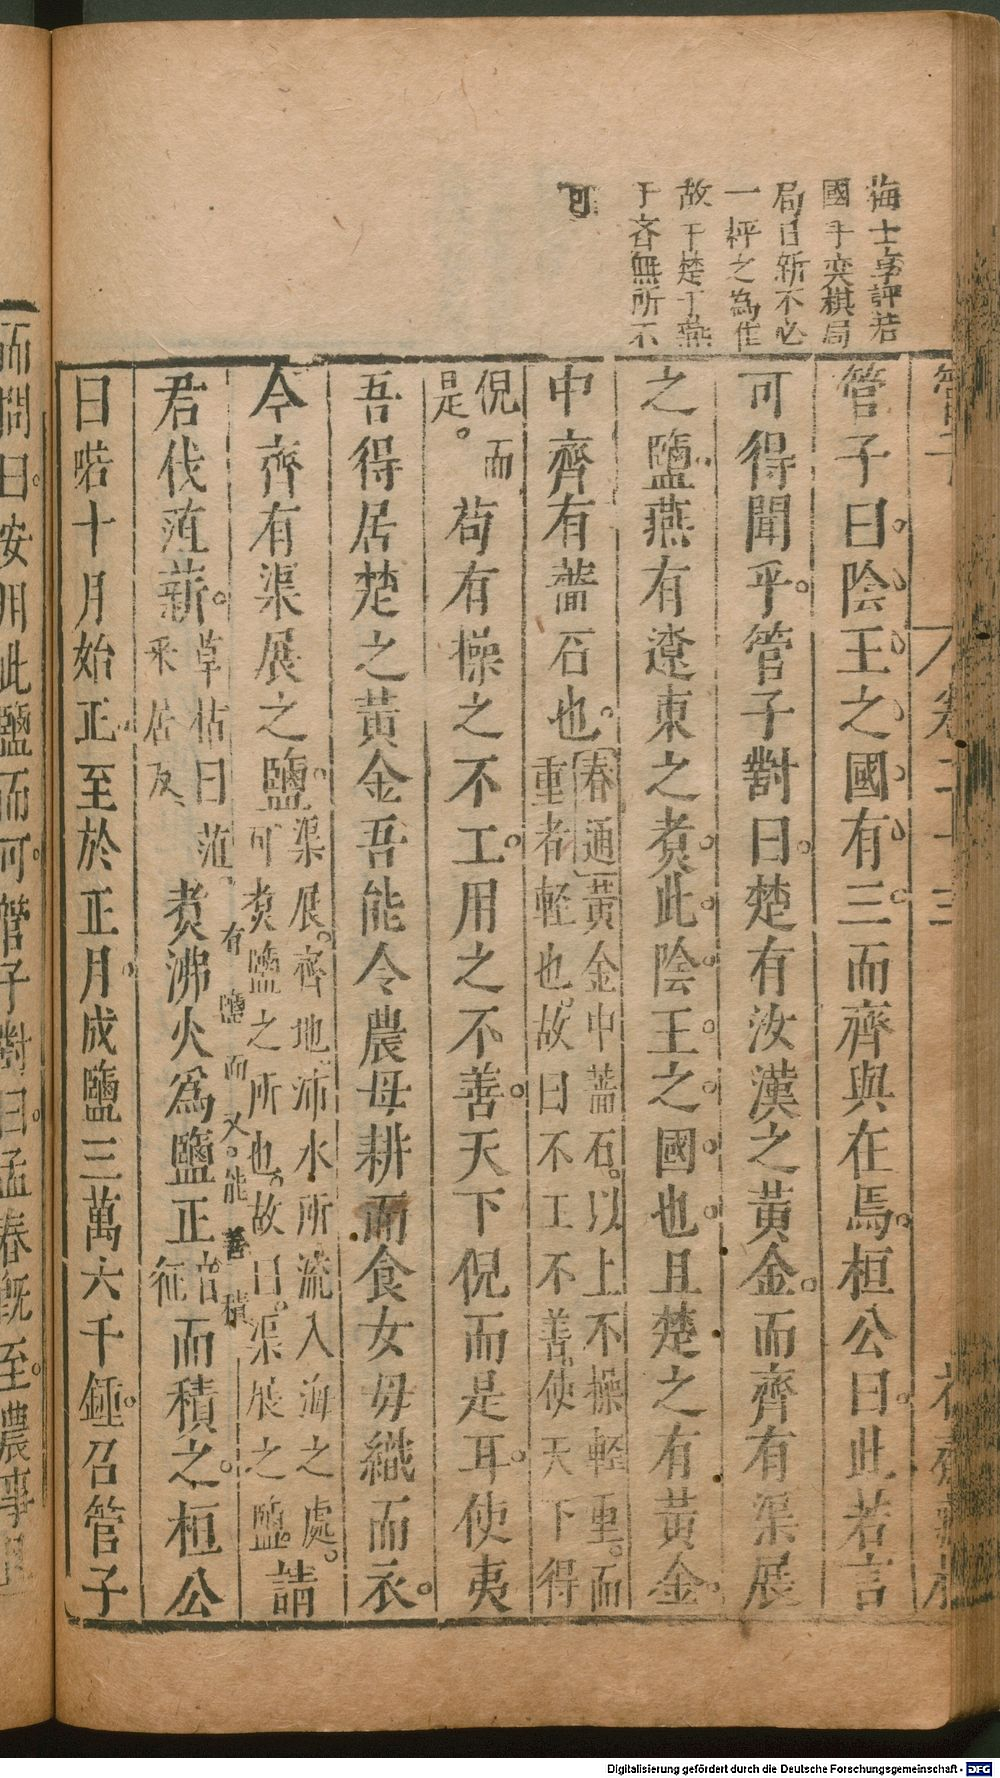 梅士享評若
國手奕棋局
局日新不必
一枰之為佳
故于楚于燕
于吝無所不
可
管子 卷二十三 花齋藏板
管子曰。陰王之國有三。而齊與在焉。桓公曰。此若言
可得聞乎。管子對曰。楚有汝漢之黃金。而齊有渠展
之鹽。燕有遼東之煑。此陰王之國也。且楚之有黃金。
中齊有菑石也。
春通黃金中菑石。以上不操輕重。而
重者輕也。故曰不工不善。使天下得
倪而
是。
苟有操之不工。用之不善。天下倪而是耳。使夷
吾得居楚之黃金吾能令農毋耕而食女毋織而衣。
今齊有渠展之鹽。
渠展。齊地沛水所流入海之處。
可煑鹽之所也。故曰。渠展之鹽。
請
君伐菹薪。
草枯曰菹。
采居反、
煑沸火爲鹽正
音
征
而積之。桓公
有鹽而又。能善積
曰喏十月始正。至於正月。成鹽三萬六千鍾。召管子
而問曰。安用此鹽而可。管子對曰。孟春旣至。農事且
Digitalisierung gefördert durch die Deutsche Forschungsgemeinschaft - DFG